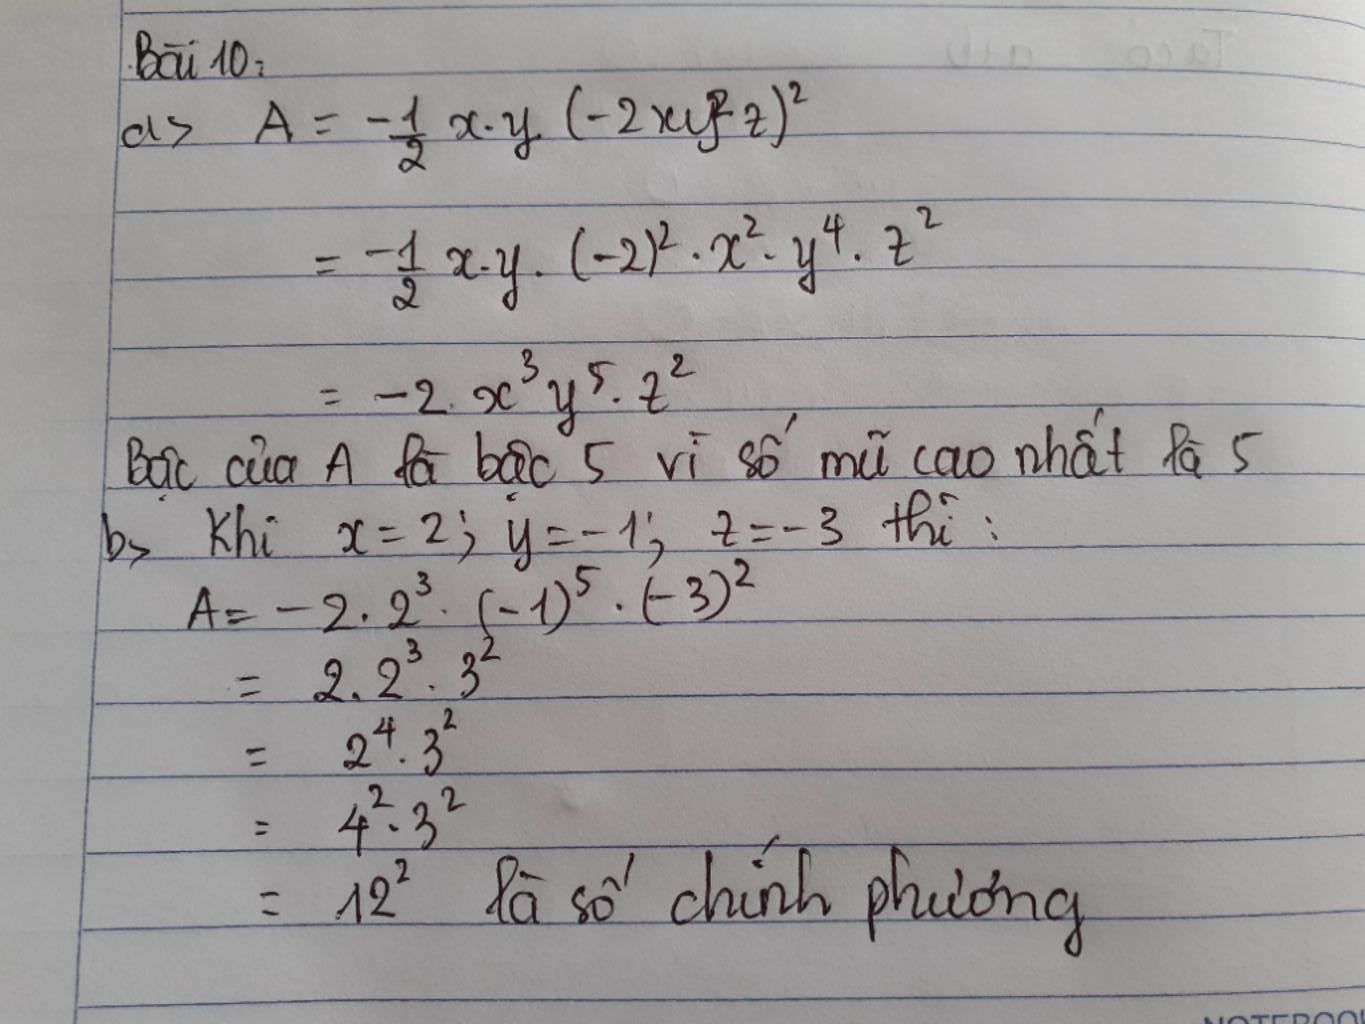 Bài 10:
a> A = -1/2 x.y. (-2xy²z)²
= -1/2 x.y. (-2)² . x² . y⁴ . z²
= -2. x³y⁵. z²
Bậc của A là bậc 5 vì số mũ cao nhất là 5
b> Khi x = 2; y = -1; z = -3 thì :
A = -2 . 2³ . (-1)⁵ . (-3)²
= 2. 2³ . 3²
= 2⁴ . 3²
= 4² . 3²
= 12² là số chính phương
NOTEBOOK